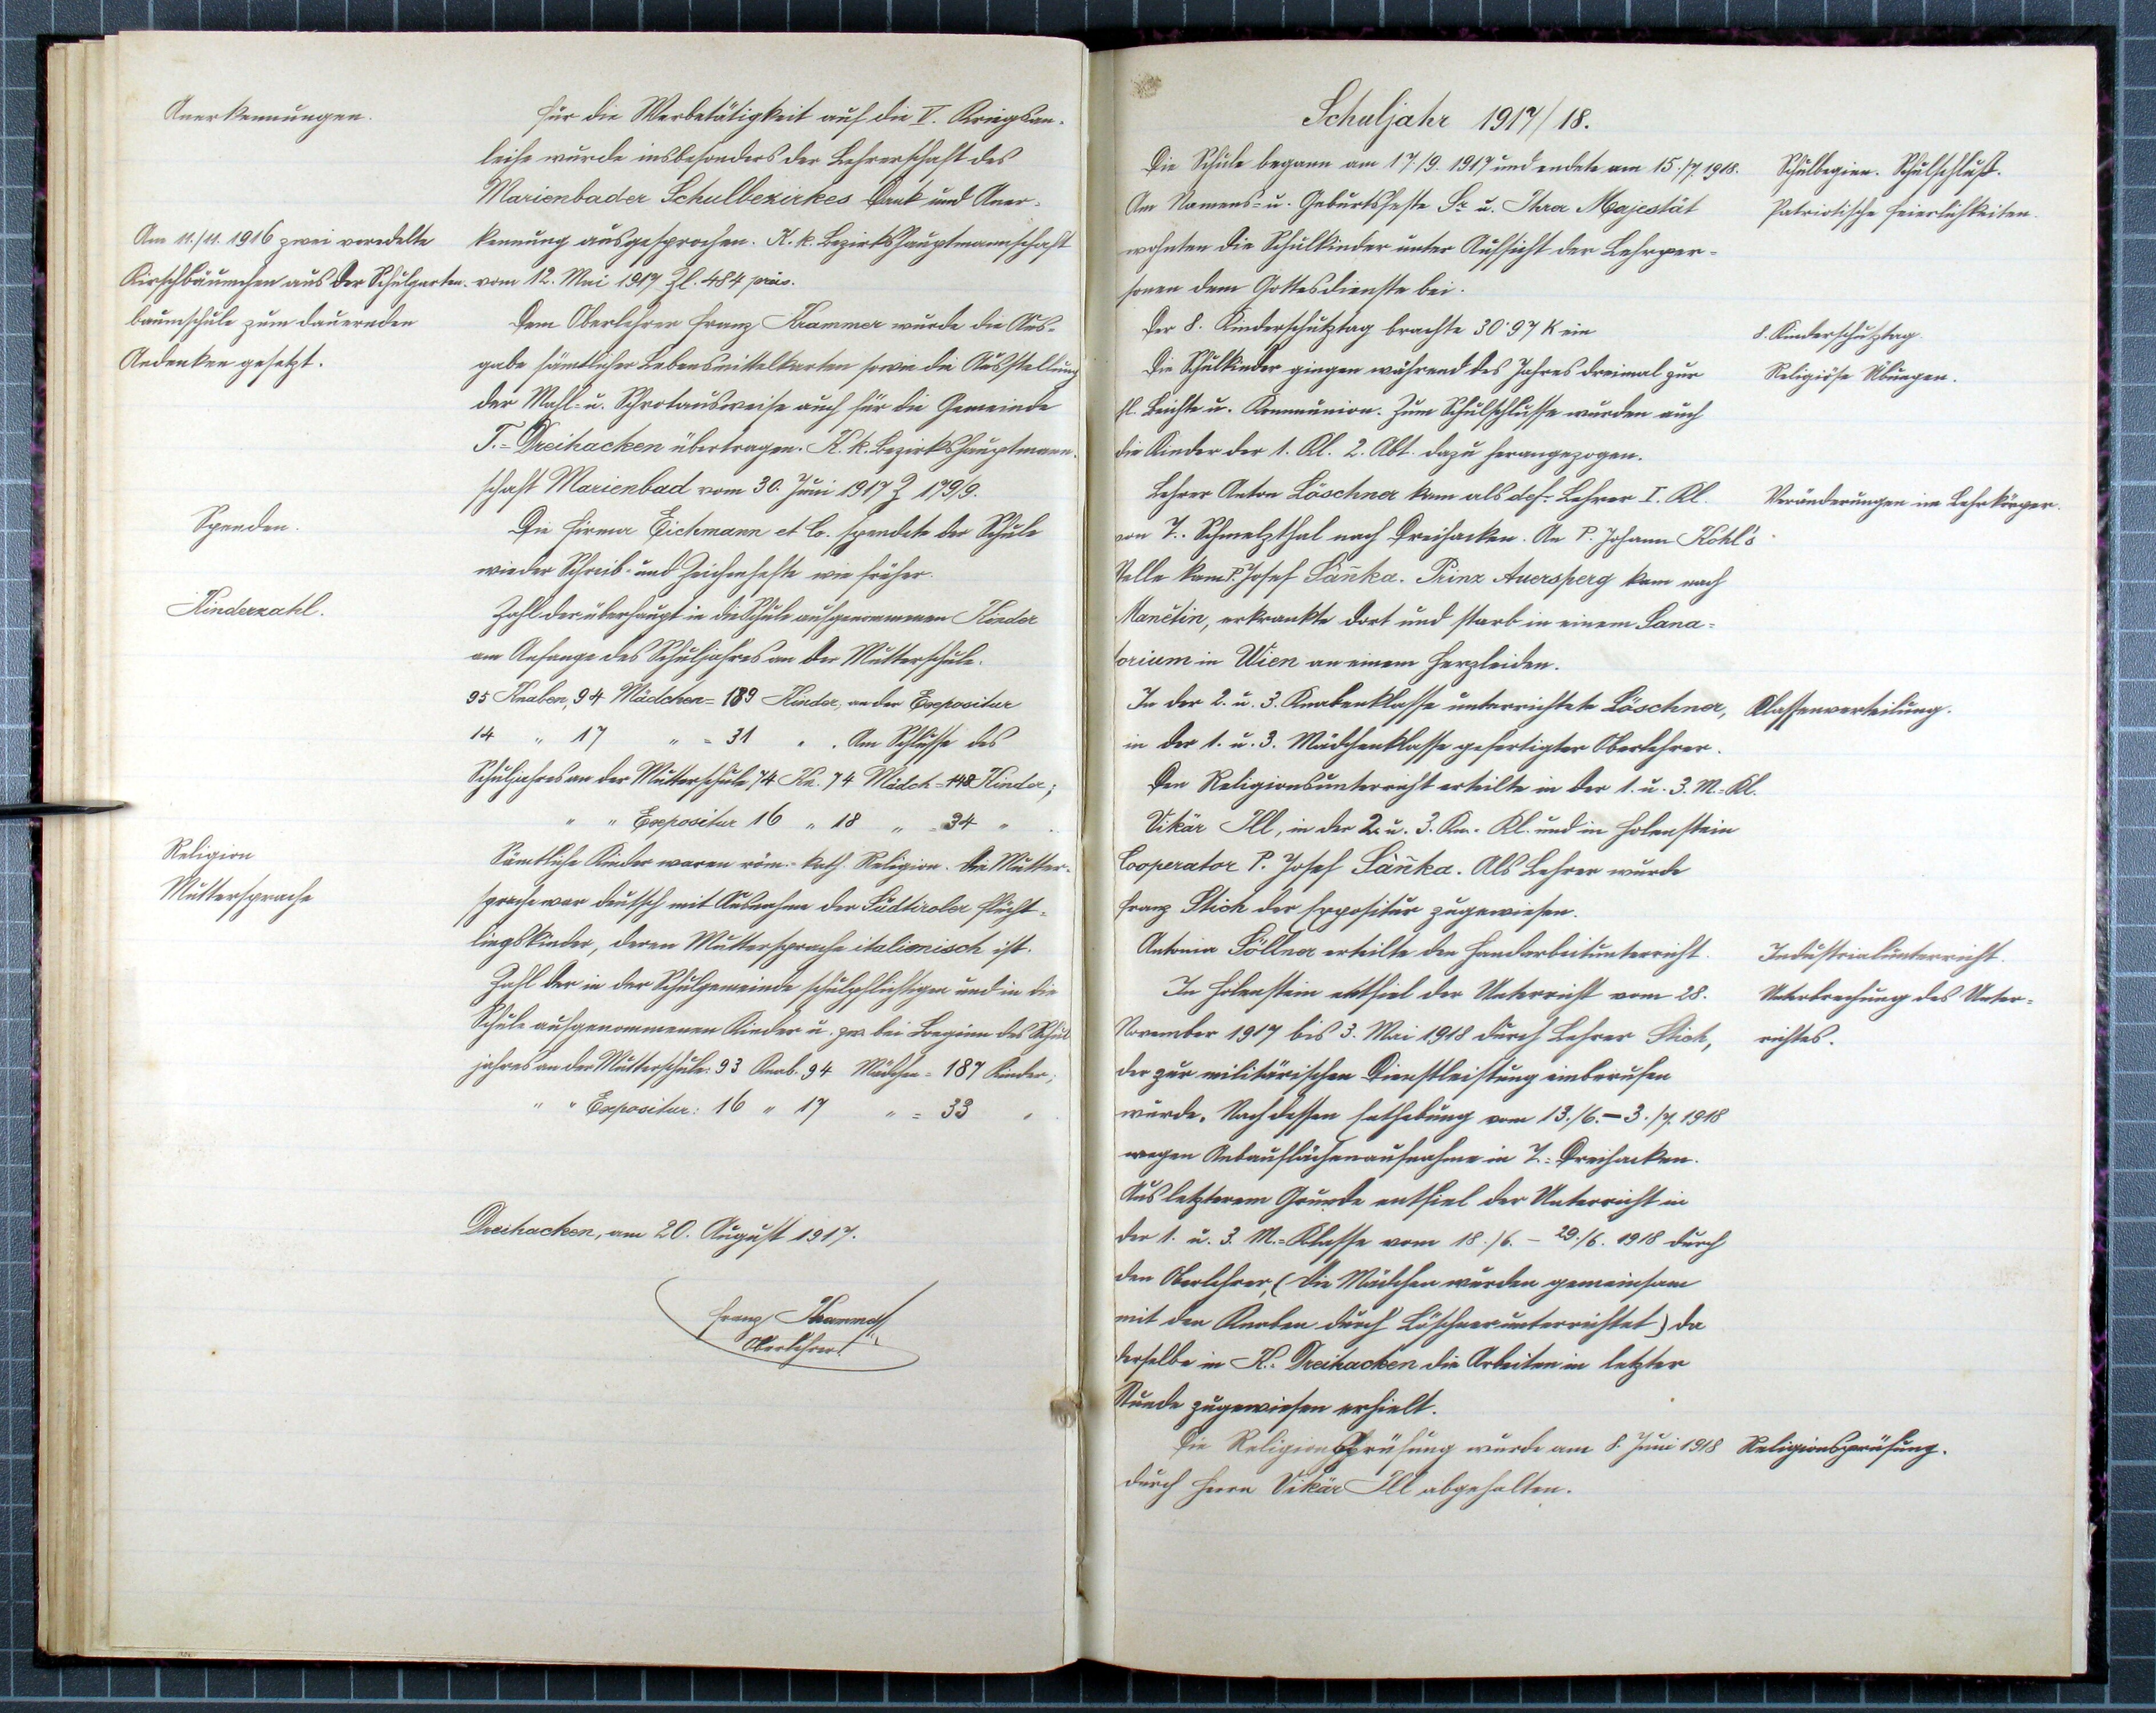 Anerkennungen.
Für die Werbetätigkeit auf die V. Kriegsan-
leihe wurde insbesonders der Lehrerschaft des
Marienbader Schulbezirkes Dank und Aner-
kennung ausgesprochen. K. k. Bezirkshauptmannschaft
vom 12. Mai 1917 Zl. 484 präs.
Am 11./11. 1916 zwei veredelte
Kirschbäumchen aus der Schulgarten-
baumschule zum dauernden
Andenken gesetzt.
Dem Oberlehrer Franz Krammer wurde die Aus-
gabe sämtlicher Lebensmittelkarten sowie die Ausstellung
der Mahl- u. Schrotausweise auch für die Gemeinde
T.-Dreihacken übertragen. K. k. Bezirkshauptmann-
schaft Marienbad vom 30. Juni 1917 Z 179/9.
Spenden.
Die Firma Eichmann et Co. spendete der Schule
wieder Schreib- und Zeichenhefte wie früher.
Kinderzahl.
Zahl der überhaupt in die Schule aufgenommenen Kinder
am Anfange des Schuljahres an der Mutterschule.
95 Knaben, 94 Mädchen = 189 Kinder, an der Expositur
14 " 17 " = 31 " . Am Schlusse des
Schuljahres an der Mutterschule 74 Kn. 74 Mädch = 148 Kinder;
" " Expositur 16 " 18 " = 34 " .
Religion
Muttersprache
Sämtliche Kinder waren röm.-kath. Religion. Die Mutter-
sprache war deutsch mit Ausnahme der Südtiroler Flücht-
lingskinder, deren Muttersprache italienisch ist.
Zahl der in der Schulgemeinde schulpflichtigen und in die
Schule aufgenommenen Kinder u. zw. bei Beginn des Schul
jahres an der Mutterschule: 93 Knab. 94 Mädchen = 187 Kinder;
" " Expositur: 16 " 17 " = 33 " .
Dreihacken, am 20. August 1917.
Franz Krammer
Oberlehrer.
Schuljahr 1917/18.
Die Schule begann am 17./9. 1917 und endete am 15./7. 1918.
Schulbeginn. Schulschluß.
Am Namens- u. Geburtsfeste Sr u. Ihrer Majestät
Patriotische Feierlichkeiten.
wohnten die Schulkinder unter Aufsicht der Lehrper-
sonen dem Gottesdienste bei.
Der 8. Kinderschutztag brachte 30·97 K ein
8. Kinderschutztag.
Die Schulkinder gingen während des Jahres dreimal zur
Religiöse Übungen.
hl. Beichte u. Kommunion. Zum Schulschlusse wurden auch
die Kinder der 1. Kl. 2. Abt. dazu herangezogen.
Lehrer Anton Löschner kam als def. Lehrer I. Kl.
Veränderungen im Lehrkörper.
von T. Schmelzthal nach Dreihacken. An P. Johann Kohl's
Stelle kam P. Josef Saňka. Prinz Auersperg kam nach
Manětin, erkrankte dort und starb in einem Sana-
torium in Wien an einem Herzleiden.
In der 2. u. 3. Knabenklasse unterrichtete Löschner,
Klassenverteilung.
in der 1. u. 3. Mädchenklasse gefertigter Oberlehrer.
Den Religionsunterricht erteilte in der 1. u. 3. M.-Kl.
Vikär Ill, in der 2. u. 3. Kn.-Kl. und in Holenstein
Cooperator P. Josef Saňka. Als Lehrer wurde
Franz Stich der Expositur zugewiesen.
Antonia Söllner erteilte den Handarbeitunterricht.
Industrialunterricht.
In Holenstein entfiel der Unterricht vom 28.
Unterbrechung des Unter-
November 1917 bis 3. Mai 1918 durch Lehrer Stich,
richtes.
der zur militärischen Dienstleistung einberufen
wurde. Nach dessen Enthebung vom 13./6. – 3./7. 1918
wegen Anbauflächenaufnahme in T.-Dreihacken.
Aus letzterem Grunde entfiel der Unterricht in
der 1. u. 3. M.-Klasse vom 18./6. – 29./6. 1918 durch
den Oberlehrer, (die Mädchen wurden gemeinsam
mit den Knaben durch Löschner unterrichtet) da
derselbe in K.-Dreihacken die Arbeiten in letzter
Stunde zugewiesen erhielt.
Die Religionsprüfung wurde am 8. Juni 1918
Religionsprüfung.
durch Herrn Vikär Ill abgehalten.